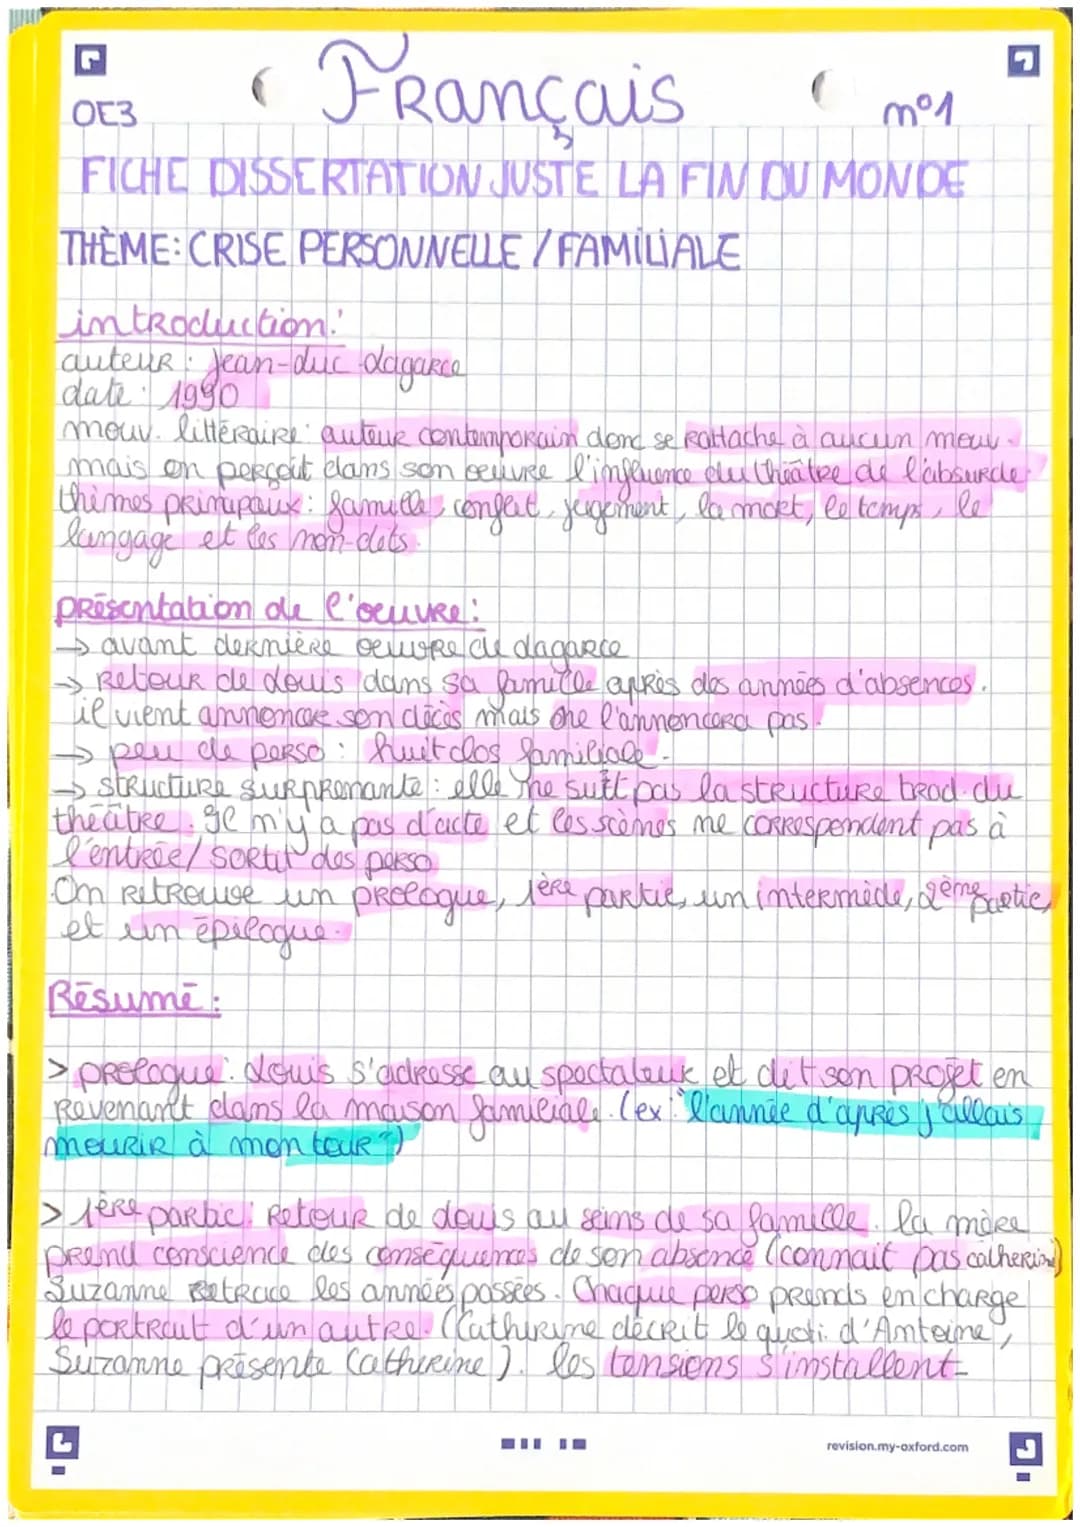 Français
OE3
n°1
FICHE DISSERTATION JUSTE LA FIN DU MONDE
THÈME: CRISE PERSONNELLE / FAMILIALE
introduction:
auteur: Jean-Luc Lagarce
date: 1990
mouv. littéraire: auteur contemporain donc se rattache à aucun mouv.
mais on perçoit dans son oeuvre l'influence du théâtre de l'absurde.
thèmes principaux: famille, conflit, jugement, la mort, le temps, le
langage et les non-dits.
présentation de l'oeuvre:
→ avant dernière oeuvre de Lagarce
→ Retour de Louis dans sa famille après des années d'absences.
il vient annoncer son décès mais ne l'annoncera pas.
→ peu de perso: huit clos familiale.
→ structure surprenante: elle ne suit pas la structure trad. du
théâtre. Il n'y a pas d'acte et les scènes ne correspondent pas à
l'entrée/sortit des perso
On retrouve un prologue, 1ère partie, un intermède, 2ème partie,
et un épilogue.
Résumé:
> prologue: Louis s'adresse au spectateur et dit son projet en
revenant dans la maison familiale. (ex: "l'année d'après j'allais
mourir à mon tour")
> 1ère partie: Retour de Louis au seins de sa famille. la mère
prend conscience des conséquences de son absence (connait pas catherine)
Suzanne retrace les années passées. Chaque perso prends en charge
le portrait d'un autre. (Catherine décrit le quoti. d'Antoine,
Suzanne présente Catherine). les tensions s'installent
revision.my-oxford.com